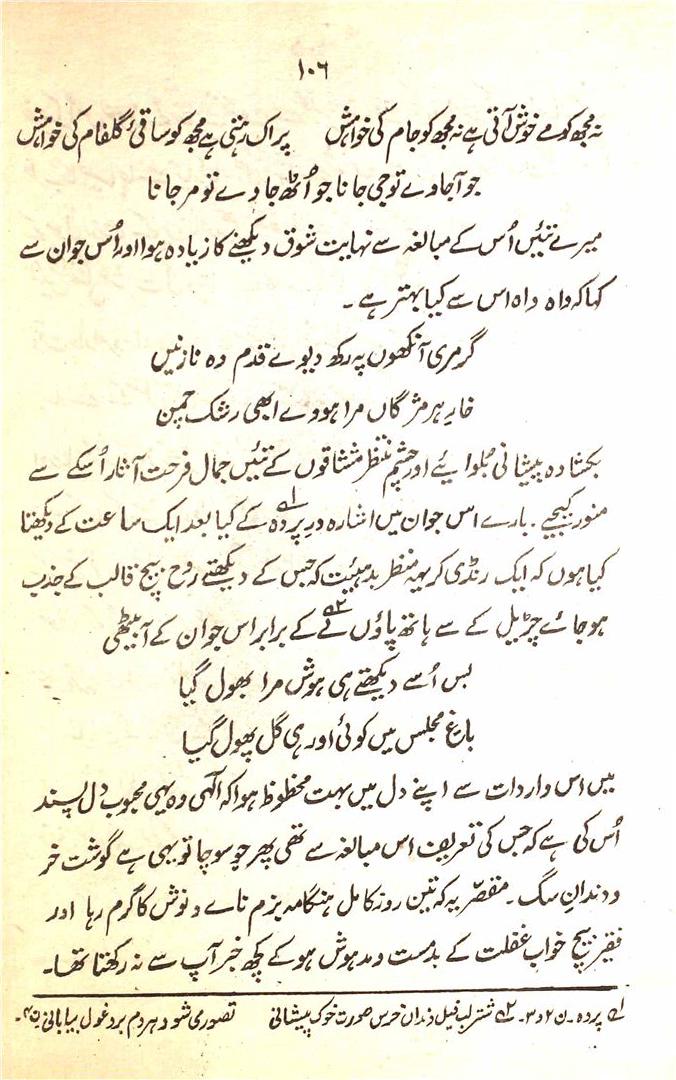 ۱۰۶
نہ مجھ کو مے خوش آتی ہے نہ مجھ کو جام کی خواہش پر اک رہتی ہے مجھ کو ساقیٔ گلفام کی خواہش
جو آجاوے تو جی جانا جو اُٹھ جاوے تو مر جانا
میرے تئیں اُس کے مبالغہ سے نہایت شوق دیکھنے کا زیادہ ہوا اور اُس جوان سے
کہا کہ واہ واہ اس سے کیا بہتر ہے ۔
گر مری آنکھوں پہ رکھ دیوے قدم وہ نازنیں
خارِ ہر مژگاں مرا ہووے ابھی رشک چمن
بکشادہ پیشانی بُلوائیے اور چشم منتظر مشتاقوں کے تئیں جمال فرحت آثار اُسکے سے
منور کیجیے ۔ بارے اس جوان میں اشارہ در پردہ لہ کے کیا بعد ایک ساعت کے دیکھتا
کیا ہوں کہ ایک رنڈی کریہہ منظر بد ہیئت کہ جس کے دیکھتے روح بیچ قالب کے جذب
ہو جائے چڑیل کے سے ہاتھ پاؤں ۲؎ کے برابر اس جوان کے آ بیٹھی
بس اُسے دیکھتے ہی ہوش مرا بھول گیا
باغِ مجلس میں کوئی اور ہی گل پھول گیا
میں اس واردات سے اپنے دل میں بہت محظوظ ہوا کہ الٰہی وہ یہی محبوب دل پسند
اُس کی ہے کہ جس کی تعریف اس مبالغہ سے تھی پھر جو سوچا تو یہی ہے گوشت خر
و دندانِ سگ ۔ مقصّر یہ کہ تین روز کامل ہنگامہ بزم ناے و نوش کا گرم رہا اور
فقیر بیچ خواب غفلت کے بدمست و مدہوش ہو کے کچھ خبر آپ سے نہ رکھتا تھا۔
۱؎ پردہ ۔ ن ۲ و ۳ ۔ ۲؎ شتر لب فیل دندان خرس صورت خوک پیشانی تصوری شود ہر دم برد غول بیابانی ن ۴ ۔